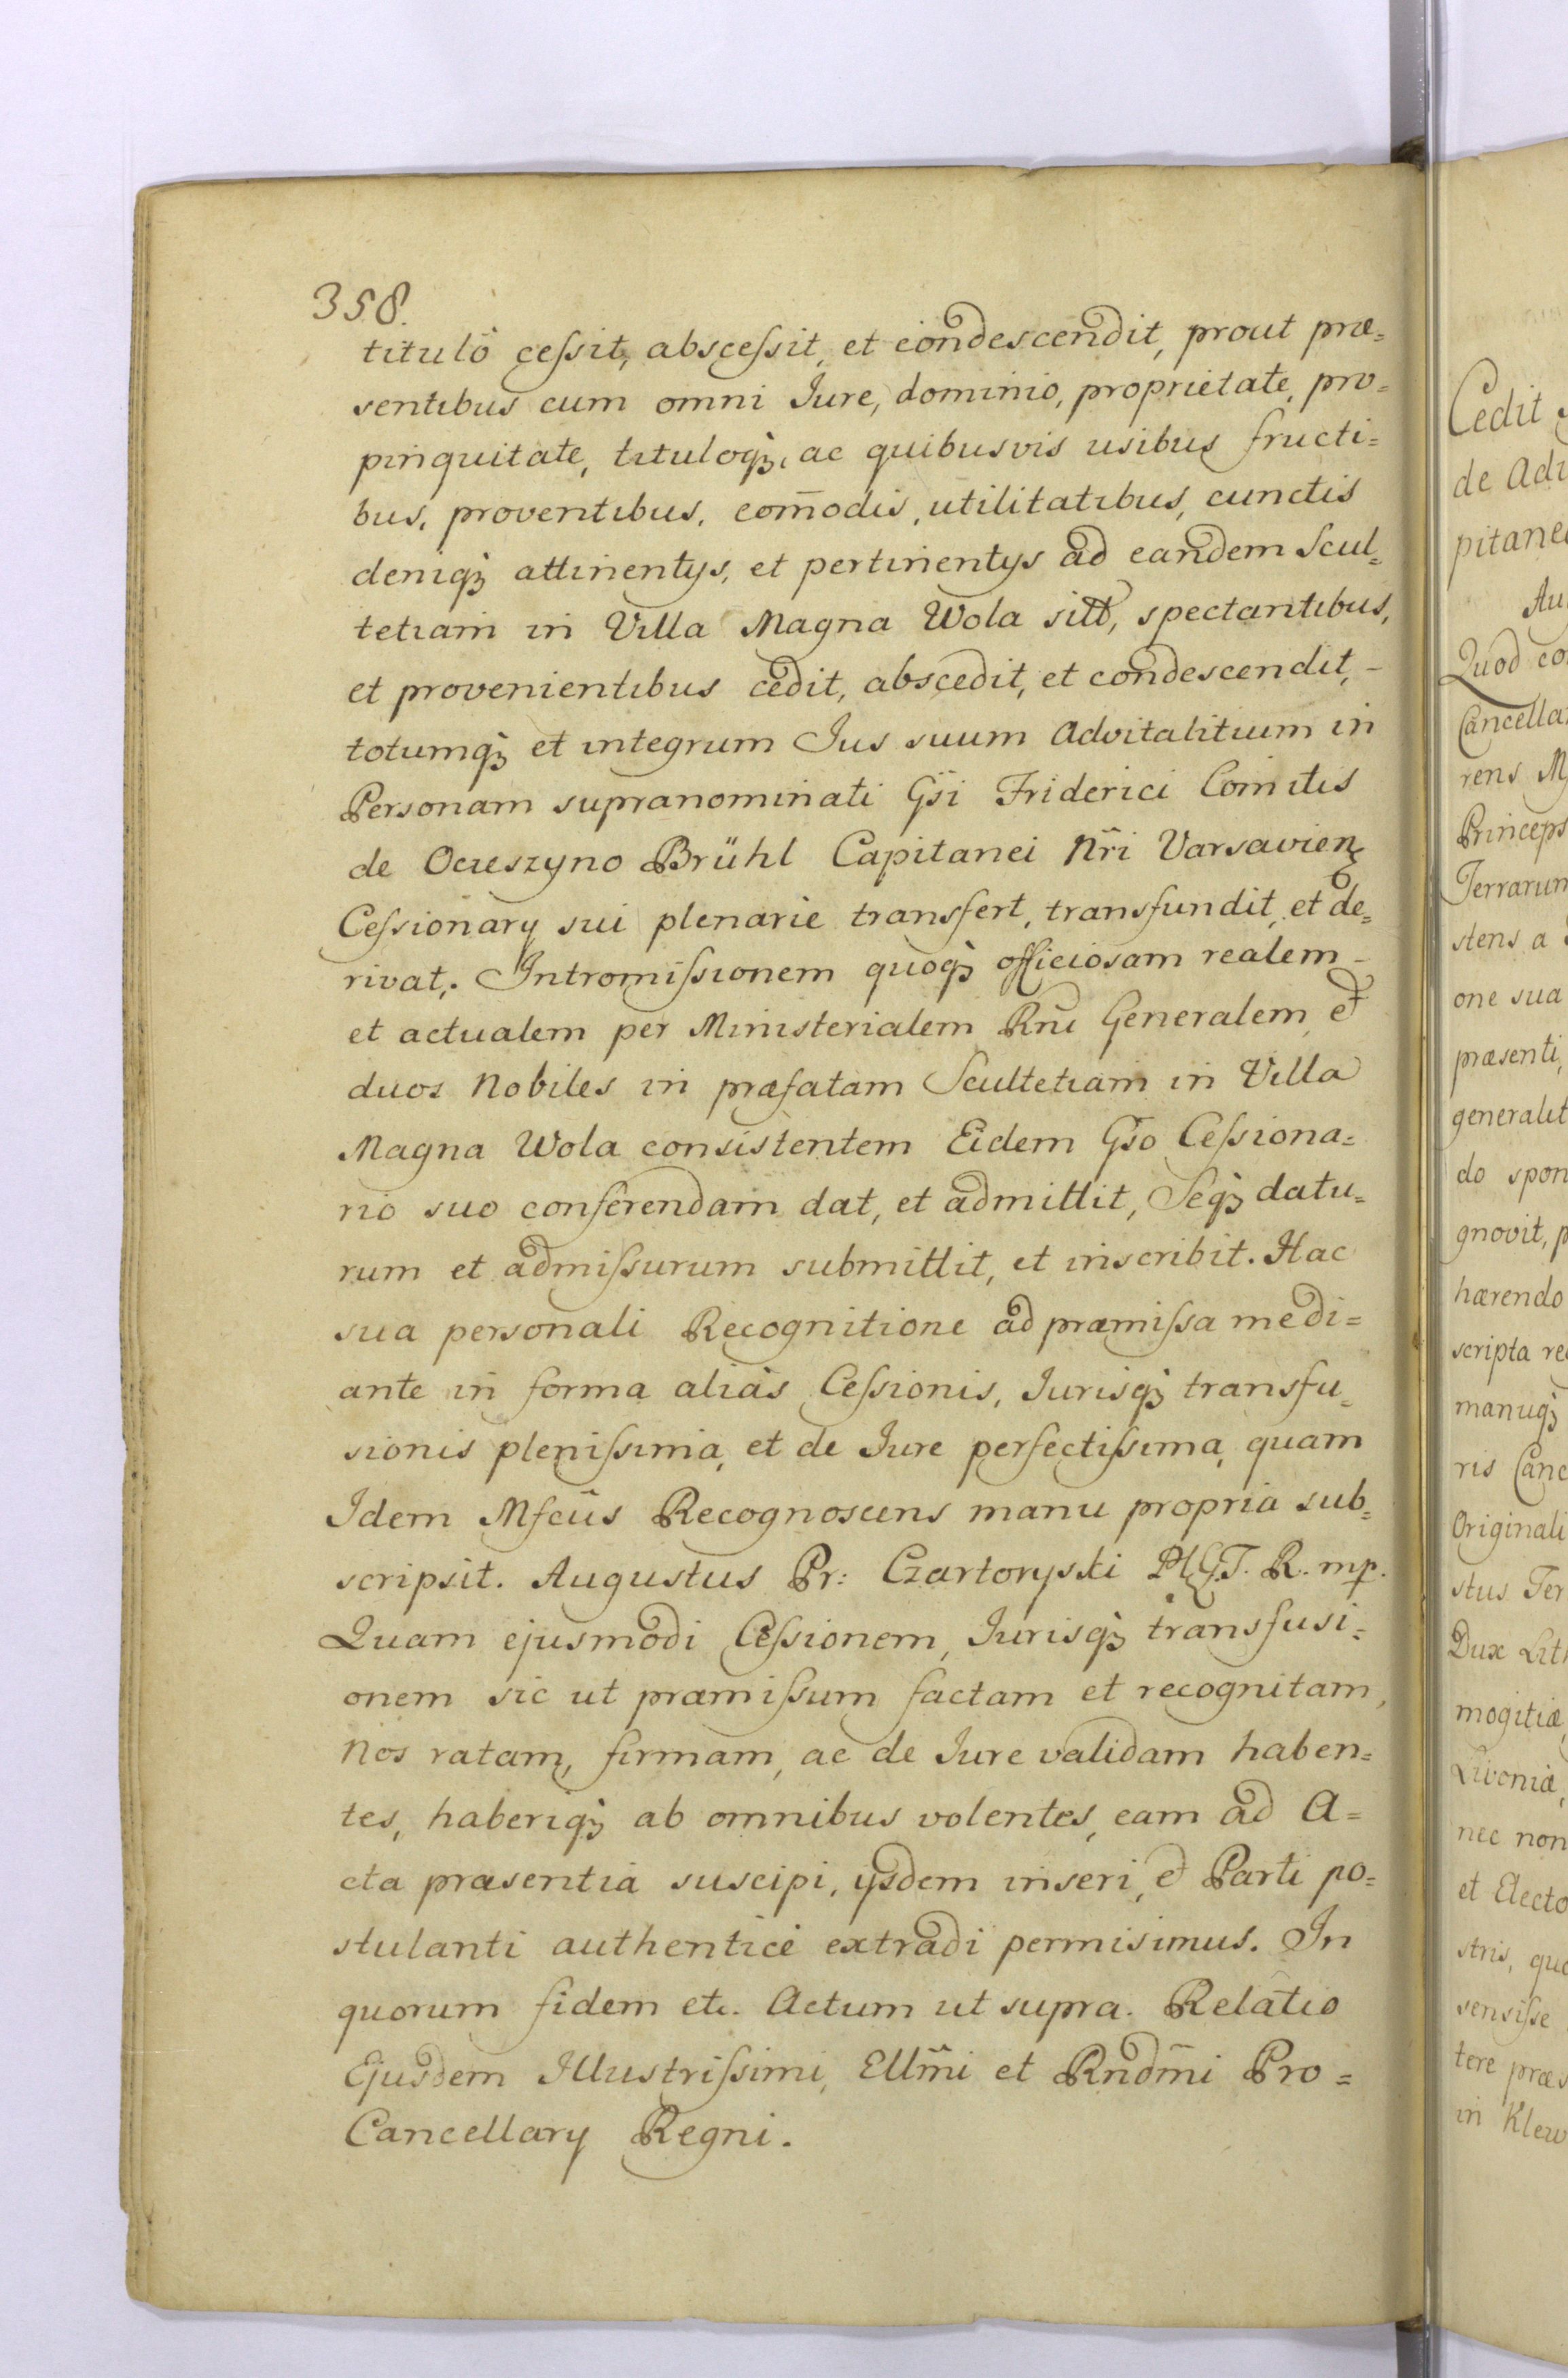 358.
titulô cessit, abscessit, et condescendit, prout præ=
sentibus cum omni Jure, dominio, proprietate, pro=
pinquitate, tituloq3, ac quibusvis usibus fructi=
bus, proventibus, com̄odis, utilitatibus, cunctis
deniq3 attinentijs, et pertinentijs ad eandem Scul=
tetiam in Villa Magna Wola , spectantibus,
et provenientibus cedit, abscedit, et condescendit, -
totumq3 et integrum Jus suum Advitalitium in
Personam supranominati Gsi Friderici Comitis
de Ocieszyno Brühl Capitanei Nr̃i Varsavien
Cessionarij sui plenarie transfert, transfundit, et de=
rivat. Intromissionem quoq3 officiosam realem -
et actualem per Ministerialem Rñi Generalem et
duos Nobiles in præfatam Scultetiam in Villa
Magna Wola consistentem Eidem Gso Cessiona=
rio suo conferendam dat, et admittit, Seq3 datu=
rum et admissurum submittit, et inscribit. Hac
sua personali Recognitione ad præmissa medi=
ante in forma aliàs Cessionis, Jurisq3 transfu=
sionis plenissima, et de Jure perfectissima, quam
Idem Mfcus Recognoscens manu propria sub=
scripsit. Augustus Pr: Czartoryski P.G.T.R. mp.
Quam ejusmodi Cessionem, Jurisq3 transfusi=
onem sic ut præmissum factam et recognitam,
Nos ratam, firmam, ac de Jure validam haben=
tes, haberiq3 ab omnibus volentes, eam ad A=
cta præsentia suscipi, ijsdem inseri, et Parti po=
stulanti authenticè extradi permisimus. In
quorum fidem etc. Actum ut supra. Relatio
Ejusdem Illustrissimi, Ellm̃i et Rndm̃i Pro=
Cancellarij Regni.
Cedit
de Adv
pitane
Au
Quod co
Cancella
rens M
Princeps
Terrarum
stens a
one sua
præsenti,
generalit
do spon
gnovit, p
hærendo
scripta re
manuq3
ris Canc
Originali
stus Ter
Dux Lith
mogitiæ,
Livoniæ,
nec non
et Electo
stris, quo
sensisse
tere præs
in Klew